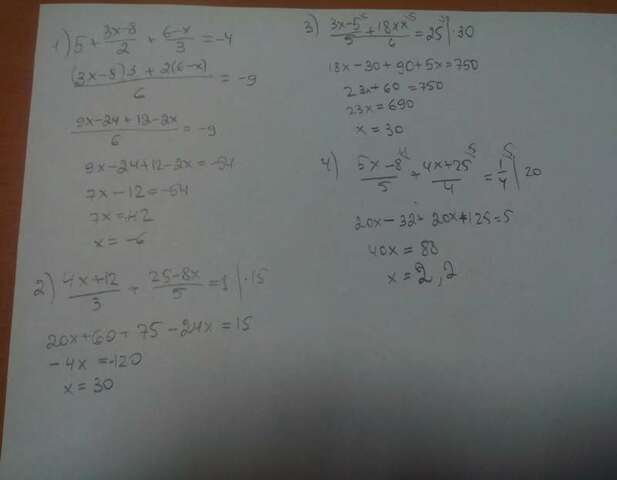 1) 5 + (3x-8)/2 + (6-x)/3 = -4
((3x-8)3 + 2(6-x))/6 = -9
(9x-24+12-2x)/6 = -9
9x-24+12-2x = -54
7x-12 = -54
7x = -42
x = -6
2) (4x+12)/3 + (25-8x)/5 = 1 | ·15
20x+60+75-24x = 15
-4x = -120
x = 30
3) /5 + /6 = 25 | ·30
18x-30+90+5x = 750
23x+60 = 750
23x = 690
x = 30
4) (5x-8)/5 + (4x+25)/4 = 1/4 | 20
20x-32+20x+125=5
40x = 88
x = 2,2